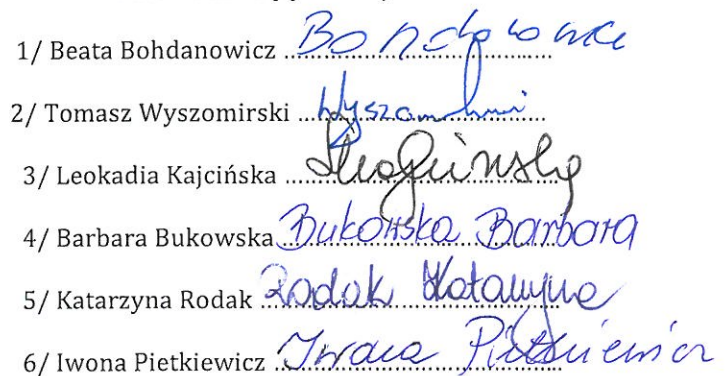 1/ Beata Bohdanowicz
2/ Tomasz Wyszomirski
3/ Leokadia Kajcińska
4/ Barbara Bukowska Bukowska Barbara
5/ Katarzyna Rodak Rodak Katarzyna
6/ Iwona Pietkiewicz Iwona Pietkiewicz